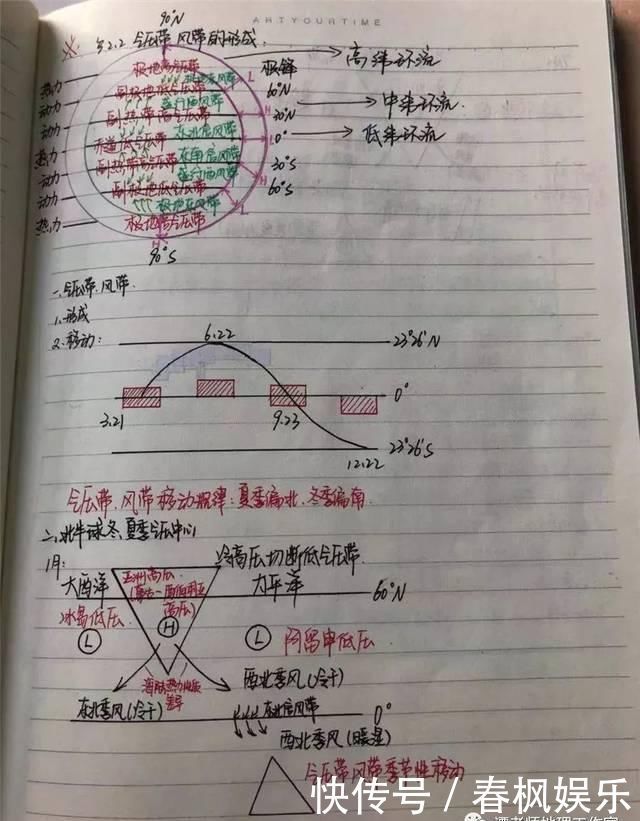 ARTYOURTIME
90°N
※ 3.2.2 气压带风带的形成.
热力
动力
动力
热力
动力
动力
热力
极地高气压带
极地东风带
副极地低气压带
盛行西风带
副热带高气压带
东北信风带
赤道低气压带
东南信风带
副热带高气压带
盛行西风带
副极地低气压带
极地东风带
极地高气压带
极锋
60°N
30°N
0°
30°S
60°S
90°S
高纬环流
中纬环流
低纬环流
一、气压带、风带.
1.形成
2.移动:
6.22
23°26'N
0°
3.21
9.23
23°26'S
12.22
气压带、风带移动规律:夏季偏北、冬季偏南.
二、北半球冬、夏季气压中心
1月:
冷高压切断低气压带.
大西洋
亚洲高压
高压)
太平洋
60°N
冰岛低压
L
H
L
阿留申低压
海陆热力性质
差异
西北季风(冷干)
东北季风(冷干)
东北信风带
0°
西北季风(暖湿)
气压带风带季节性移动
快传号 / 春枫娱乐
谭老师地理工作室